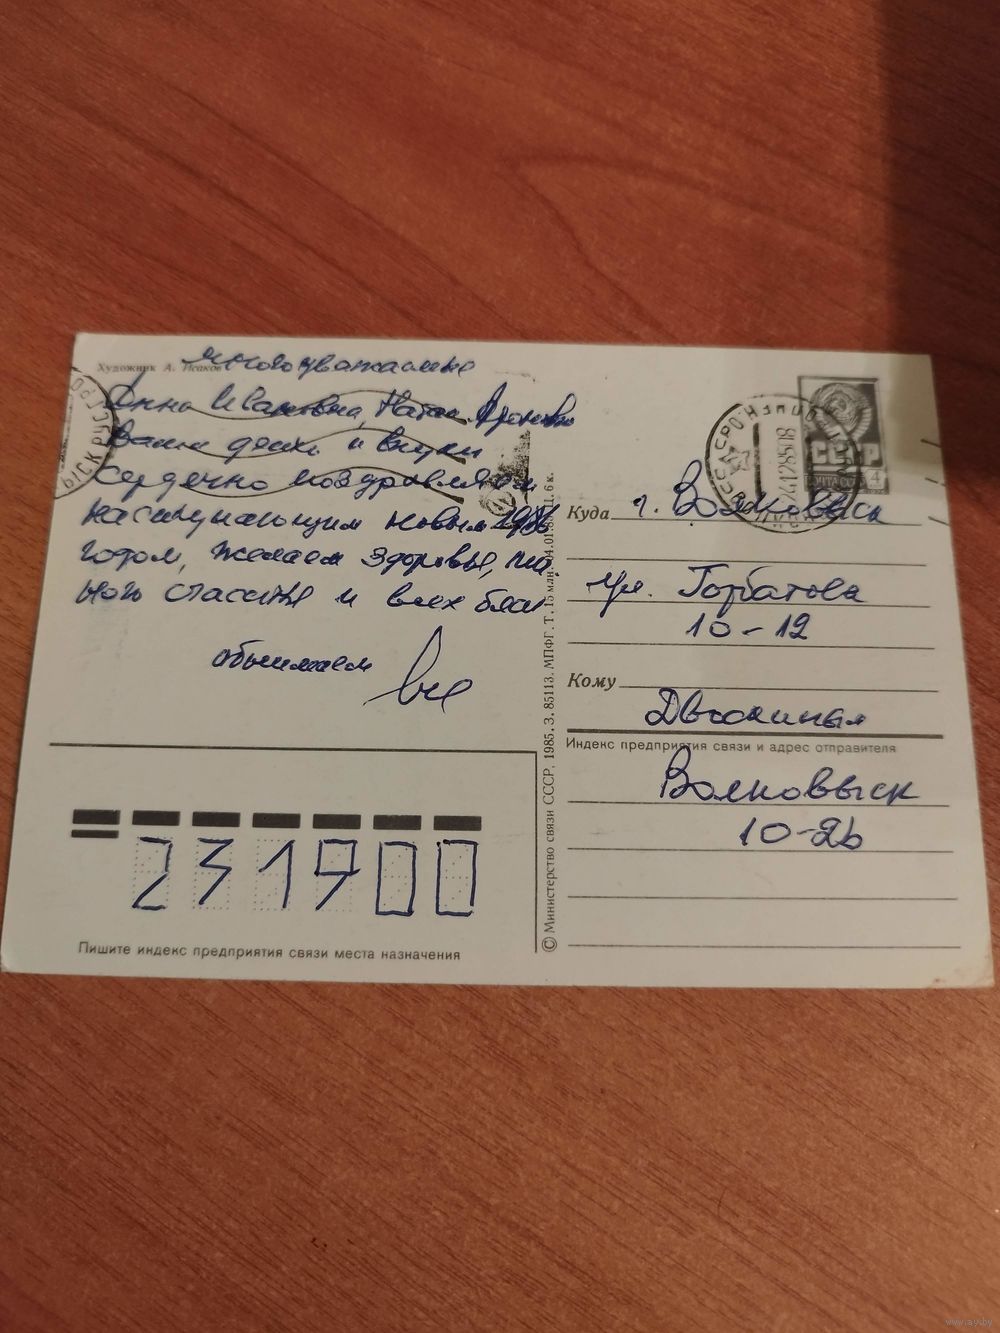 Художник А. Исаков
Многоуважаемые
Анна Ивановна, Натан
Ваши дети и внуки
сердечно поздравляем
наступающим новым 1986
годом, желаем здоровья, мно
ного счастья и всех благ
обнимаем все
СССР
ПОЧТА СССР 4
24128508
Куда г. Волковыск
ул. Горбатова
10-12
Кому
Двоскиным
Индекс предприятия связи и адрес отправителя
Волковыск
10-26
© Министерство связи СССР, 1985. З. 85113. МПФГ. Т. 15 млн. 04.01.85. Ц. 6 к.
231900
Пишите индекс предприятия связи места назначения
www.ay.by